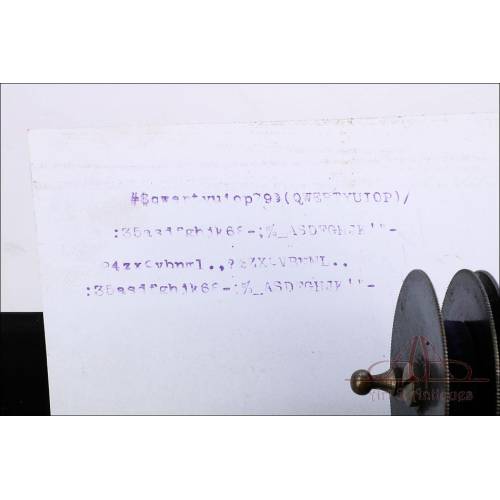 #$qwertyuiop^93(QWERTYUIOP)/
:35asdfghjk68-;%_ASDFGHJK!"-
24zxcvbnml.,?&ZXCVBNML.,
:35asdfghjk68-;%_ASDFGHJK!"-
Antiques